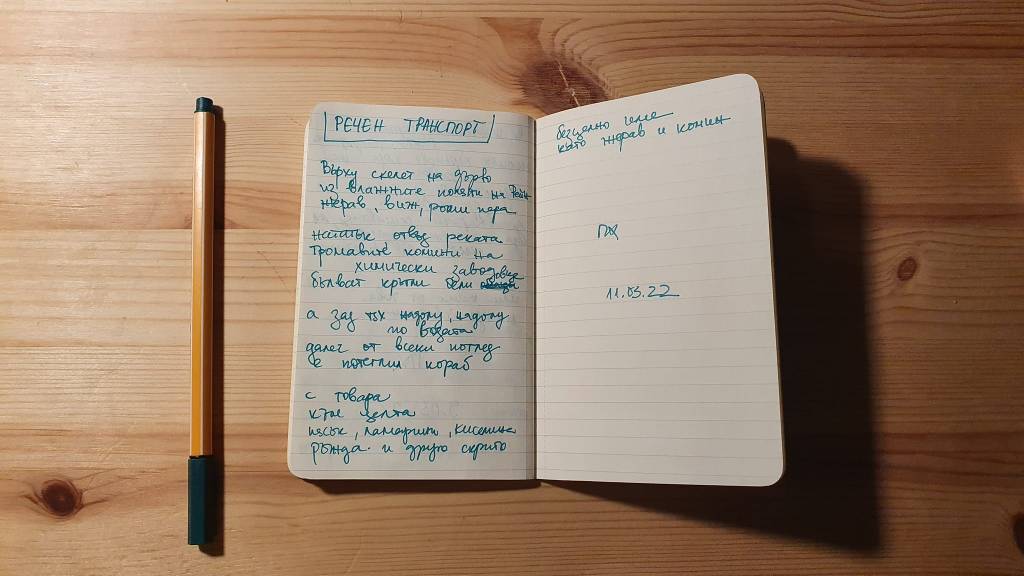 РЕЧЕН ТРАНСПОРТ
Върху скелет на дърво
из влажните поляни на Рейн
жерав, виж, рони пера
нататък отвъд реката
тромавите комини на
химически заводи
бълват кръгли бели
а зад тях надолу, надолу
по водата
далеч от всеки поглед
е потеглил кораб
с товара
към целта
пясък, ламарини, киселина
ръжда и друго скрито
безценно
като жерав и комин
ПЖ
11.03.22